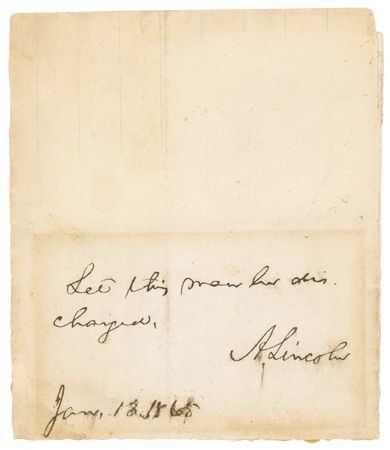 Let this man be dis.
charged.
A. Lincoln
Jan. 13. 1865